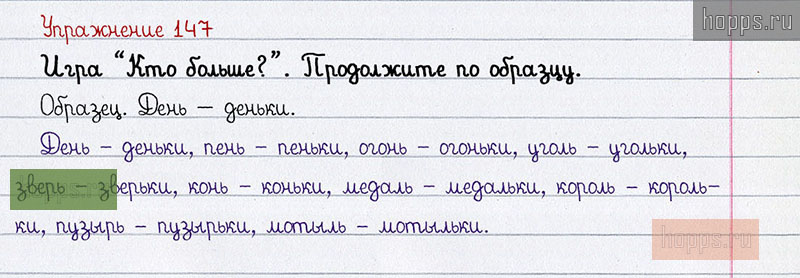 hopps.ru
Упражнение 147
Игра “Кто больше?”. Продолжите по образцу.
Образец. День – деньки.
День – деньки, пень – пеньки, огонь – огоньки, уголь – угольки,
зверь – зверьки, конь – коньки, медаль – медальки, король – король-
ки, пузырь – пузырьки, мотыль – мотыльки.
hopps.ru